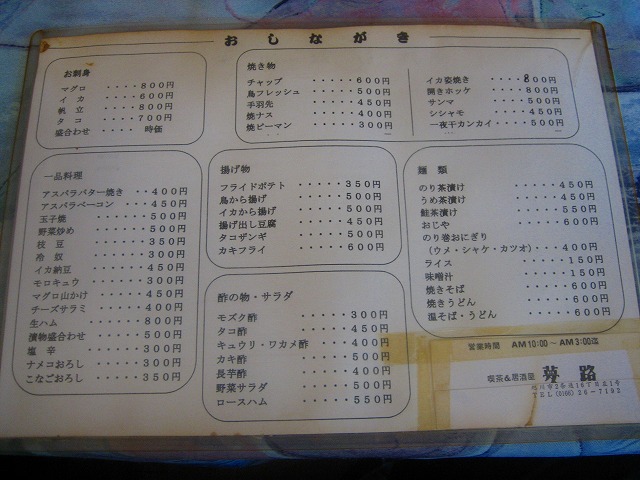 おしながき
お刺身
マグロ ････８００円
イカ ････６００円
帆立 ････８００円
タコ ････７００円
盛合わせ ････ 時価
焼き物
チャップ ･････６００円
鳥フレッシュ ･････５００円
手羽先 ･････４５０円
焼ナス ･････４００円
焼ピーマン ･････３００円
イカ姿焼き ････８００円
開きホッケ ････８００円
サンマ ･････５００円
シシャモ ･････４５０円
一夜干カンカイ････５００円
一品料理
アスパラバター焼き ･･４００円
アスパラベーコン ････４５０円
玉子焼 ･････５００円
野菜炒め ･････５００円
枝豆 ･････３５０円
冷奴 ･････３００円
イカ納豆 ･････４５０円
モロキュウ ･････３００円
マグロ山かけ ････４５０円
チーズサラミ ････４００円
生ハム ････８００円
漬物盛合わせ ････５００円
塩辛 ････３００円
ナメコおろし ････３００円
こなごおろし ････３５０円
揚げ物
フライドポテト ･････３５０円
鳥から揚げ ･････５００円
イカから揚げ ･････５００円
揚げ出し豆腐 ･････４５０円
タコザンギ ･････５００円
カキフライ ･････６００円
酢の物・サラダ
モズク酢 ･････３００円
タコ酢 ･････４５０円
キュウリ・ワカメ酢 ････４００円
カキ酢 ･････５００円
長芋酢 ･････４００円
野菜サラダ ･････５００円
ロースハム ･････５５０円
麺類
のり茶漬け ･････４５０円
うめ茶漬け ･････４５０円
鮭茶漬け ･････５５０円
おじや ･････６００円
のり巻おにぎり
（ウメ・シャケ・カツオ）･･･４００円
ライス ･････１５０円
味噌汁 ･････１５０円
焼きそば ･････６００円
焼きうどん ･････６００円
温そば・うどん ････６００円
営業時間 AM10:00～AM3:00迄
喫茶&居酒屋 夢路
旭川市2条通16丁目左1号
TEL(0166)26-7192